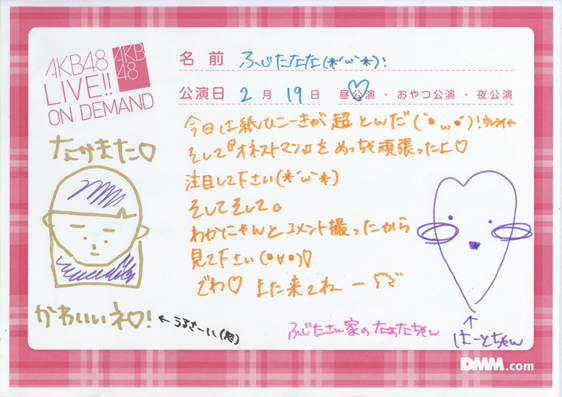 AKB48
LIVE!!
ON DEMAND
AKB
48
名前 ふじたなな(*´ω`*)!
公演日 2月19日 昼公演・おやつ公演・夜公演
今日は紙ひこーきが超とんだ(`・ω・´)!
そして『オネストマン』をめっちゃ頑張ったよ♡
注目して下さい(*´ω`*)
そしてそして。
わかにゃんとコメント撮ったから
見て下さい(●∀●)♡
でわ♡ また来てねー
なかまた♡
かわいいネ♡!
←うるさーい(怒)
ふじたさん家のななたちゃん
↑
はーとちゃん
DMM.com